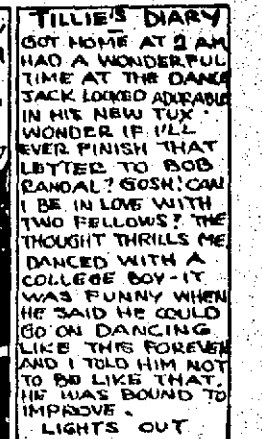 TILLIE'S DIARY
GOT HOME AT 2 AM
HAD A WONDERFUL
TIME AT THE DANCE
JACK LOOKED ADORABLE
IN HIS NEW TUX.
WONDER IF I'LL
EVER FINISH THAT
LETTER TO BOB
RANDAL? GOSH! CAN
I BE IN LOVE WITH
TWO FELLOWS? THE
THOUGHT THRILLS ME
DANCED WITH A
COLLEGE BOY-IT
WAS FUNNY WHEN
HE SAID HE COULD
GO ON DANCING
LIKE THIS FOREVER
AND I TOLD HIM NOT
TO BE LIKE THAT.
HE WAS BOUND TO
IMPROVE.
LIGHTS OUT